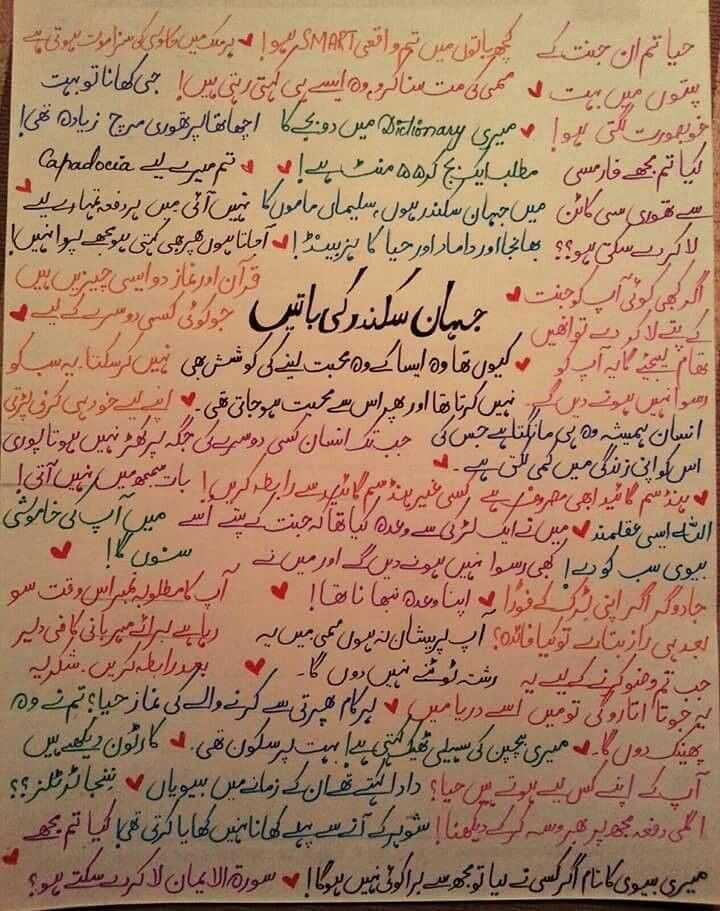 حیا تم ان جنت کے
پتوں میں بہت
خوبصورت لگتی ہو!
کیا تم مجھے فارمسی
سے تھوڑی سی کاٹن
لا کر دے سکتی ہو؟؟
کچھ باتوں میں تم واقعی SMART ہو!
ممی کی مت سنا کرو وہ ایسے ہی کہتی رہتی ہیں!
میری Dictionary میں دو بجے کا
مطلب ایک بج کر ۵۵ منٹ ہے!
میں جہان سکندر ہوں، سلیماں ماموں کا
بھانجا اور داماد اور حیا کا ہزبینڈ!
ہر ملک میں کی سزا موت ہوتی ہے
جی کھانا تو بہت
اچھا تھا پر تھوڑی مرچ زیادہ تھی!
تم میرے لیے Capadocia
نہیں آئی میں ہر دفعہ تمہارے لیے
آ جاتا ہوں پھر بھی کہتی ہو مجھے پروا نہیں!
جہان سکندر کی باتیں
اگر کبھی کوئی آپ کو جنت
کے پتے لا کر دے تو انھیں
تھام لیجئے گا یہ آپ کو
رسوا نہیں ہونے دیں گے۔
کیوں تھا وہ ایسا کے وہ محبت لینے کی کوشش بھی
نہیں کرتا تھا اور پھر اس سے محبت ہو جاتی تھی۔
قرآن اور نماز دو ایسی چیزیں ہیں
جو کوئی کسی دوسرے کے لیے
نہیں کر سکتا۔ یہ سب کو
اپنے لیے خود ہی کرنی پڑتی
انسان ہمیشہ وہ ہی مانگتا ہے جس کی
اس کو اپنی زندگی میں کمی لگتی ہے۔
جب تک انسان کسی دوسرے کی جگہ پر کھڑ نہیں ہوتا پوری
بات سمجھ میں نہیں آتی!
ہنڈسم گائیڈ ابھی مصروف ہے کسی غیر ہنڈسم گائیڈ سے رابطہ کریں!
اللہ ایسی عقلمند
بیوی سب کو دے!
میں نے ایک لڑکی سے وعدہ کیا تھا کہ جنت کے پتے اسے
کبھی رسوا نہیں ہونے دیں گے اور میں نے
اپنا وعدہ نبھانا تھا!
میں آپ کی خاموشی
سنوں گا!
جادوگر اگر اپنی ٹرک کے فوراً
بعد ہی راز بتا دے تو کیا فائدہ؟
آپ پریشان نہ ہوں ممی میں یہ
رشتہ ٹوٹنے نہیں دوں گا۔
آپ کا مطلوبہ نمبر اس وقت سو
رہا ہے برائے مہربانی کافی دیر
بعد رابطہ کریں۔ شکریہ
جب تم وضو کرنے کے لیے یہ
یہ جوتا اتارو گی تو میں اسے دریا میں
پھینک دوں گا۔
ہر کام پھرتی سے کرنے والے کی نماز
بہت پر سکون تھی۔
میری بچپن کی سہیلی ٹھیک کہتی ہے!
حیا؟ تم نے وہ
کارٹون دیکھے ہیں
نینجا ٹرٹلز؟؟
آپ کے اپنے کس لیے ہوتے ہیں حیا؟
اگلی دفعہ مجھ پر بھروسہ کر کے دیکھنا!
دادا کہتے تھے ان کے زمانے میں بیویاں
شوہر کے آنے سے پہلے کھانا نہیں کھایا کرتی تھی!
میری بیوی کا نام اگر کسی نے لیا تو مجھ سے برا کوئی نہیں ہوگا!
کیا تم مجھے
سورۃ الایمان لا کر دے سکتے ہو؟